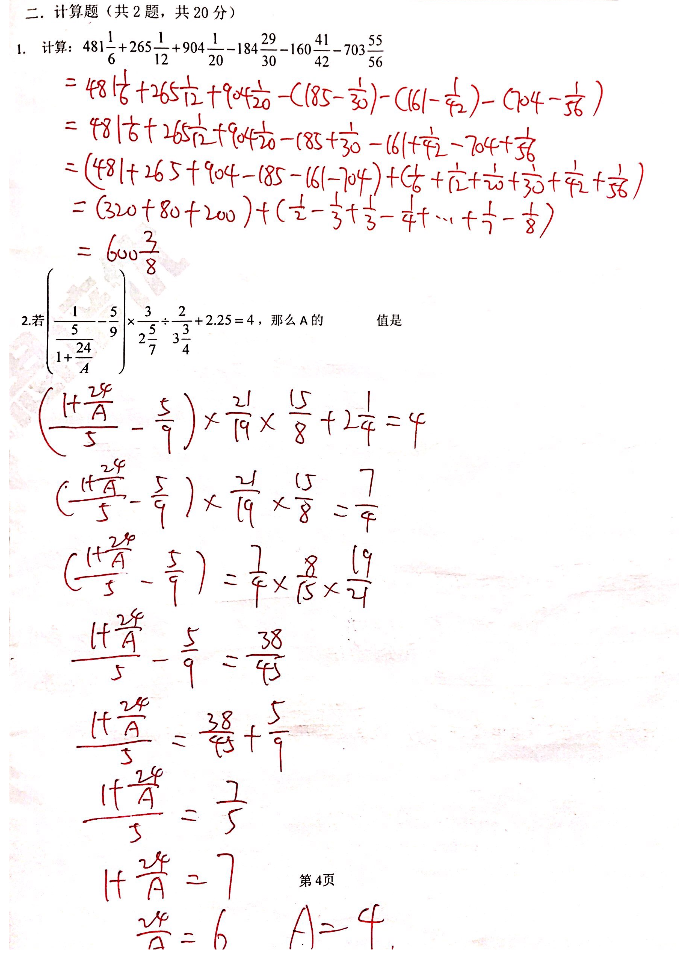 二．计算题（共 2 题，共 20 分）
1. 计算：481 1/6+265 1/12+904 1/20−184 29/30−160 41/42−703 55/56
= 481 1/6 + 265 1/12 + 904 1/20 − (185 − 1/30) − (161 − 1/42) − (704 − 1/56)
= 481 1/6 + 265 1/12 + 904 1/20 − 185 + 1/30 − 161 + 1/42 − 704 + 1/56
= (481 + 265 + 904 − 185 − 161 − 704) + (1/6 + 1/12 + 1/20 + 1/30 + 1/42 + 1/56)
= (320 + 80 + 200) + (1/2 − 1/3 + 1/3 − 1/4 + … + 1/7 − 1/8)
= 600 3/8
2.若(1/(5/(1+24/A)) − 5/9) × 3/(2 5/7) ÷ 2/(3 3/4) + 2.25 = 4，那么 A 的 值是
((1+24/A)/5 − 5/9) × 21/19 × 15/8 + 2 1/4 = 4
((1+24/A)/5 − 5/9) × 21/19 × 15/8 = 7/4
((1+24/A)/5 − 5/9) = 7/4 × 8/15 × 19/21
(1+24/A)/5 − 5/9 = 38/45
(1+24/A)/5 = 38/45 + 5/9
(1+24/A)/5 = 7/5
1+24/A = 7
第 4页
24/A = 6 A = 4.